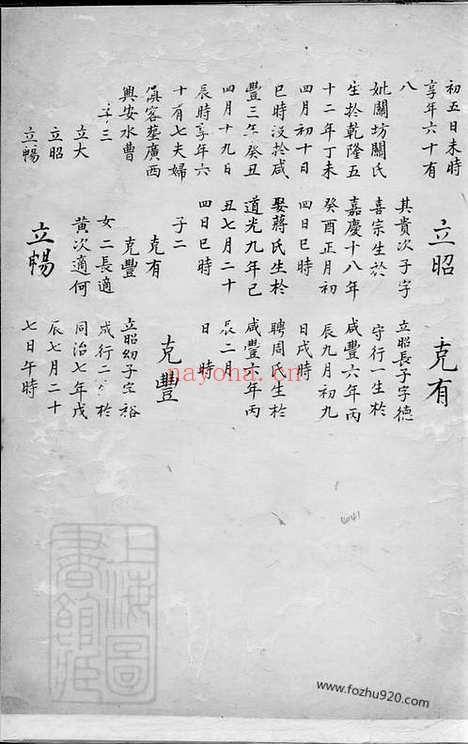 初五日未時
享年六十有
八
妣關坊關氏
生於乾隆五
十二年丁未
四月初十日
巳時沒於咸
豐三年癸丑
四月十九日
辰時享年六
十有七夫婦
容墓廣西
興安水曹
子三
立大
立昭
立暢
立昭
其貴次子字
喜宗生於
嘉慶十八年
癸酉正月初
四日巳時
娶蔣氏生於
道光九年己
丑七月二十
四日巳時
子二
克有
克豐
女二長適
黃次適何
立暢
克有
立昭長子字德
守行一生於
咸豐六年丙
辰九月初九
日戌時
聘周氏生於
咸豐六年丙
辰二月
日時
克豐
立昭幼子字裕
成行二生於
同治七年戊
辰七月二十
七日午時
nayona.cn
上海圖書館藏
www.fozhu920.com